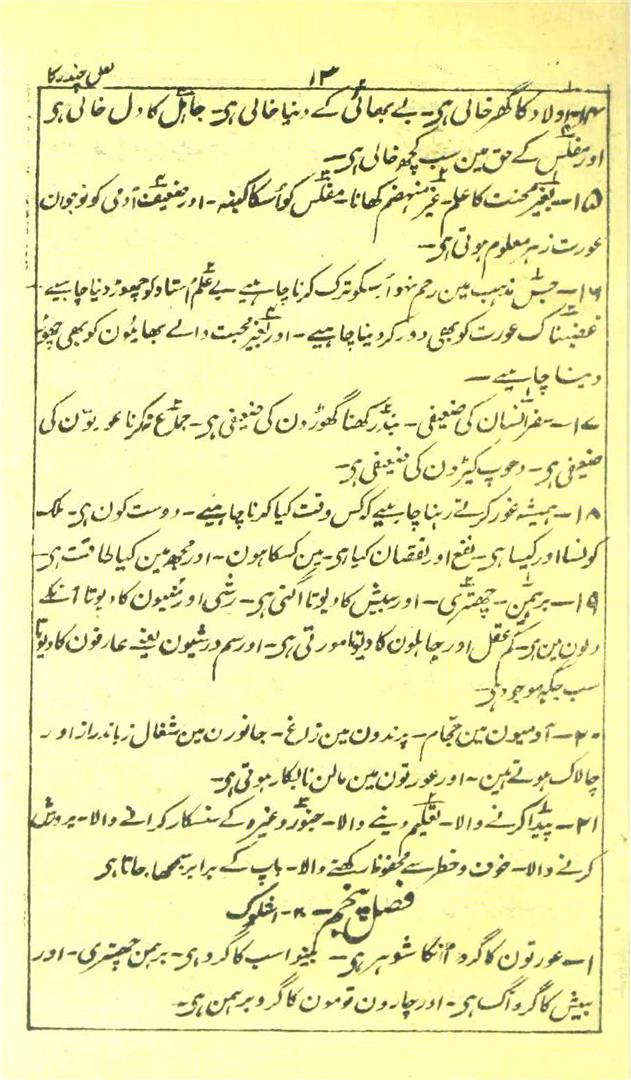 ۱۳
۱۴- اولاد کا گھر خالی ہی- بے بھائی کے دنیا خالی ہی- جاہل کا دل خالی ہی
اور مفلس کے حق مین سب کچھ خالی ہی-
۱۵- بغیر محنت کا علم- غیر منہضم کھانا- مفلس کو اُسکا کنبہ- اور ضعیف آدمی کو نوجوان
عورت زہر معلوم ہوتی ہی-
۱۶- جس مذہب مین رحم نہو اُسکو ترک کرنا چاہیے بے علم اُستاد کو چھوڑ دینا چاہیے
غضبناک عورت کو بھی دور کر دینا چاہیے- اور بغیر محبت والے بھایئون کو بھی چھوڑ
دینا چاہیے-
۱۷- سفر انسان کی ضعیفی- بندر کھنا گھوڑون کی ضعیفی ہی- جماع نکرنا عورتون کی
ضعیفی ہی- دھوپ کپڑون کی ضعیفی ہی-
۱۸- ہمیشہ غور کرتے رہنا چاہیے کہ کس وقت کیا کرنا چاہیے- دوست کون ہی- ملک
کونسا اور کیسا ہی- نفع اور نقصان کیا ہی- مین کسکا ہون- اور مجھ مین کیا طاقت ہی-
۱۹- برہمن- چھتری- اور بیش کا دیوتا اگنی ہی- رشی اور منیون کا دیوتا انکے
دلون مین ہی- کم عقل اور جاہلون کا دیوتا مورتی ہی- اور سم درشیون یعنے عارفون کا دیوتا
سب جگہ موجود ہی-
۲۰- آدمیون مین حجام- پرندون مین زاغ- جانورن مین شغال زباندراز اور
چالاک ہوتے ہین- اور عورتون مین مالن نابکار ہوتی ہی-
۲۱- پیدا کرنے والا- تعلیم دینے والا- جنیو وغیرہ کے سنسکار کرانے والا- پرورش
کرنے والا- خوف و خطر سے محفوظ رکھنے والا- باپ کے برابر سمجھا جاتا ہی
فصل پنجم- اشلوک
۱- عورتون کا گرو اُنکا شوہر ہی- سب کا گرو ہی- برہمن چھتری- اور
بیش کا گرو آگ ہی- اور چارون قومون کا گرو برہمن ہی-